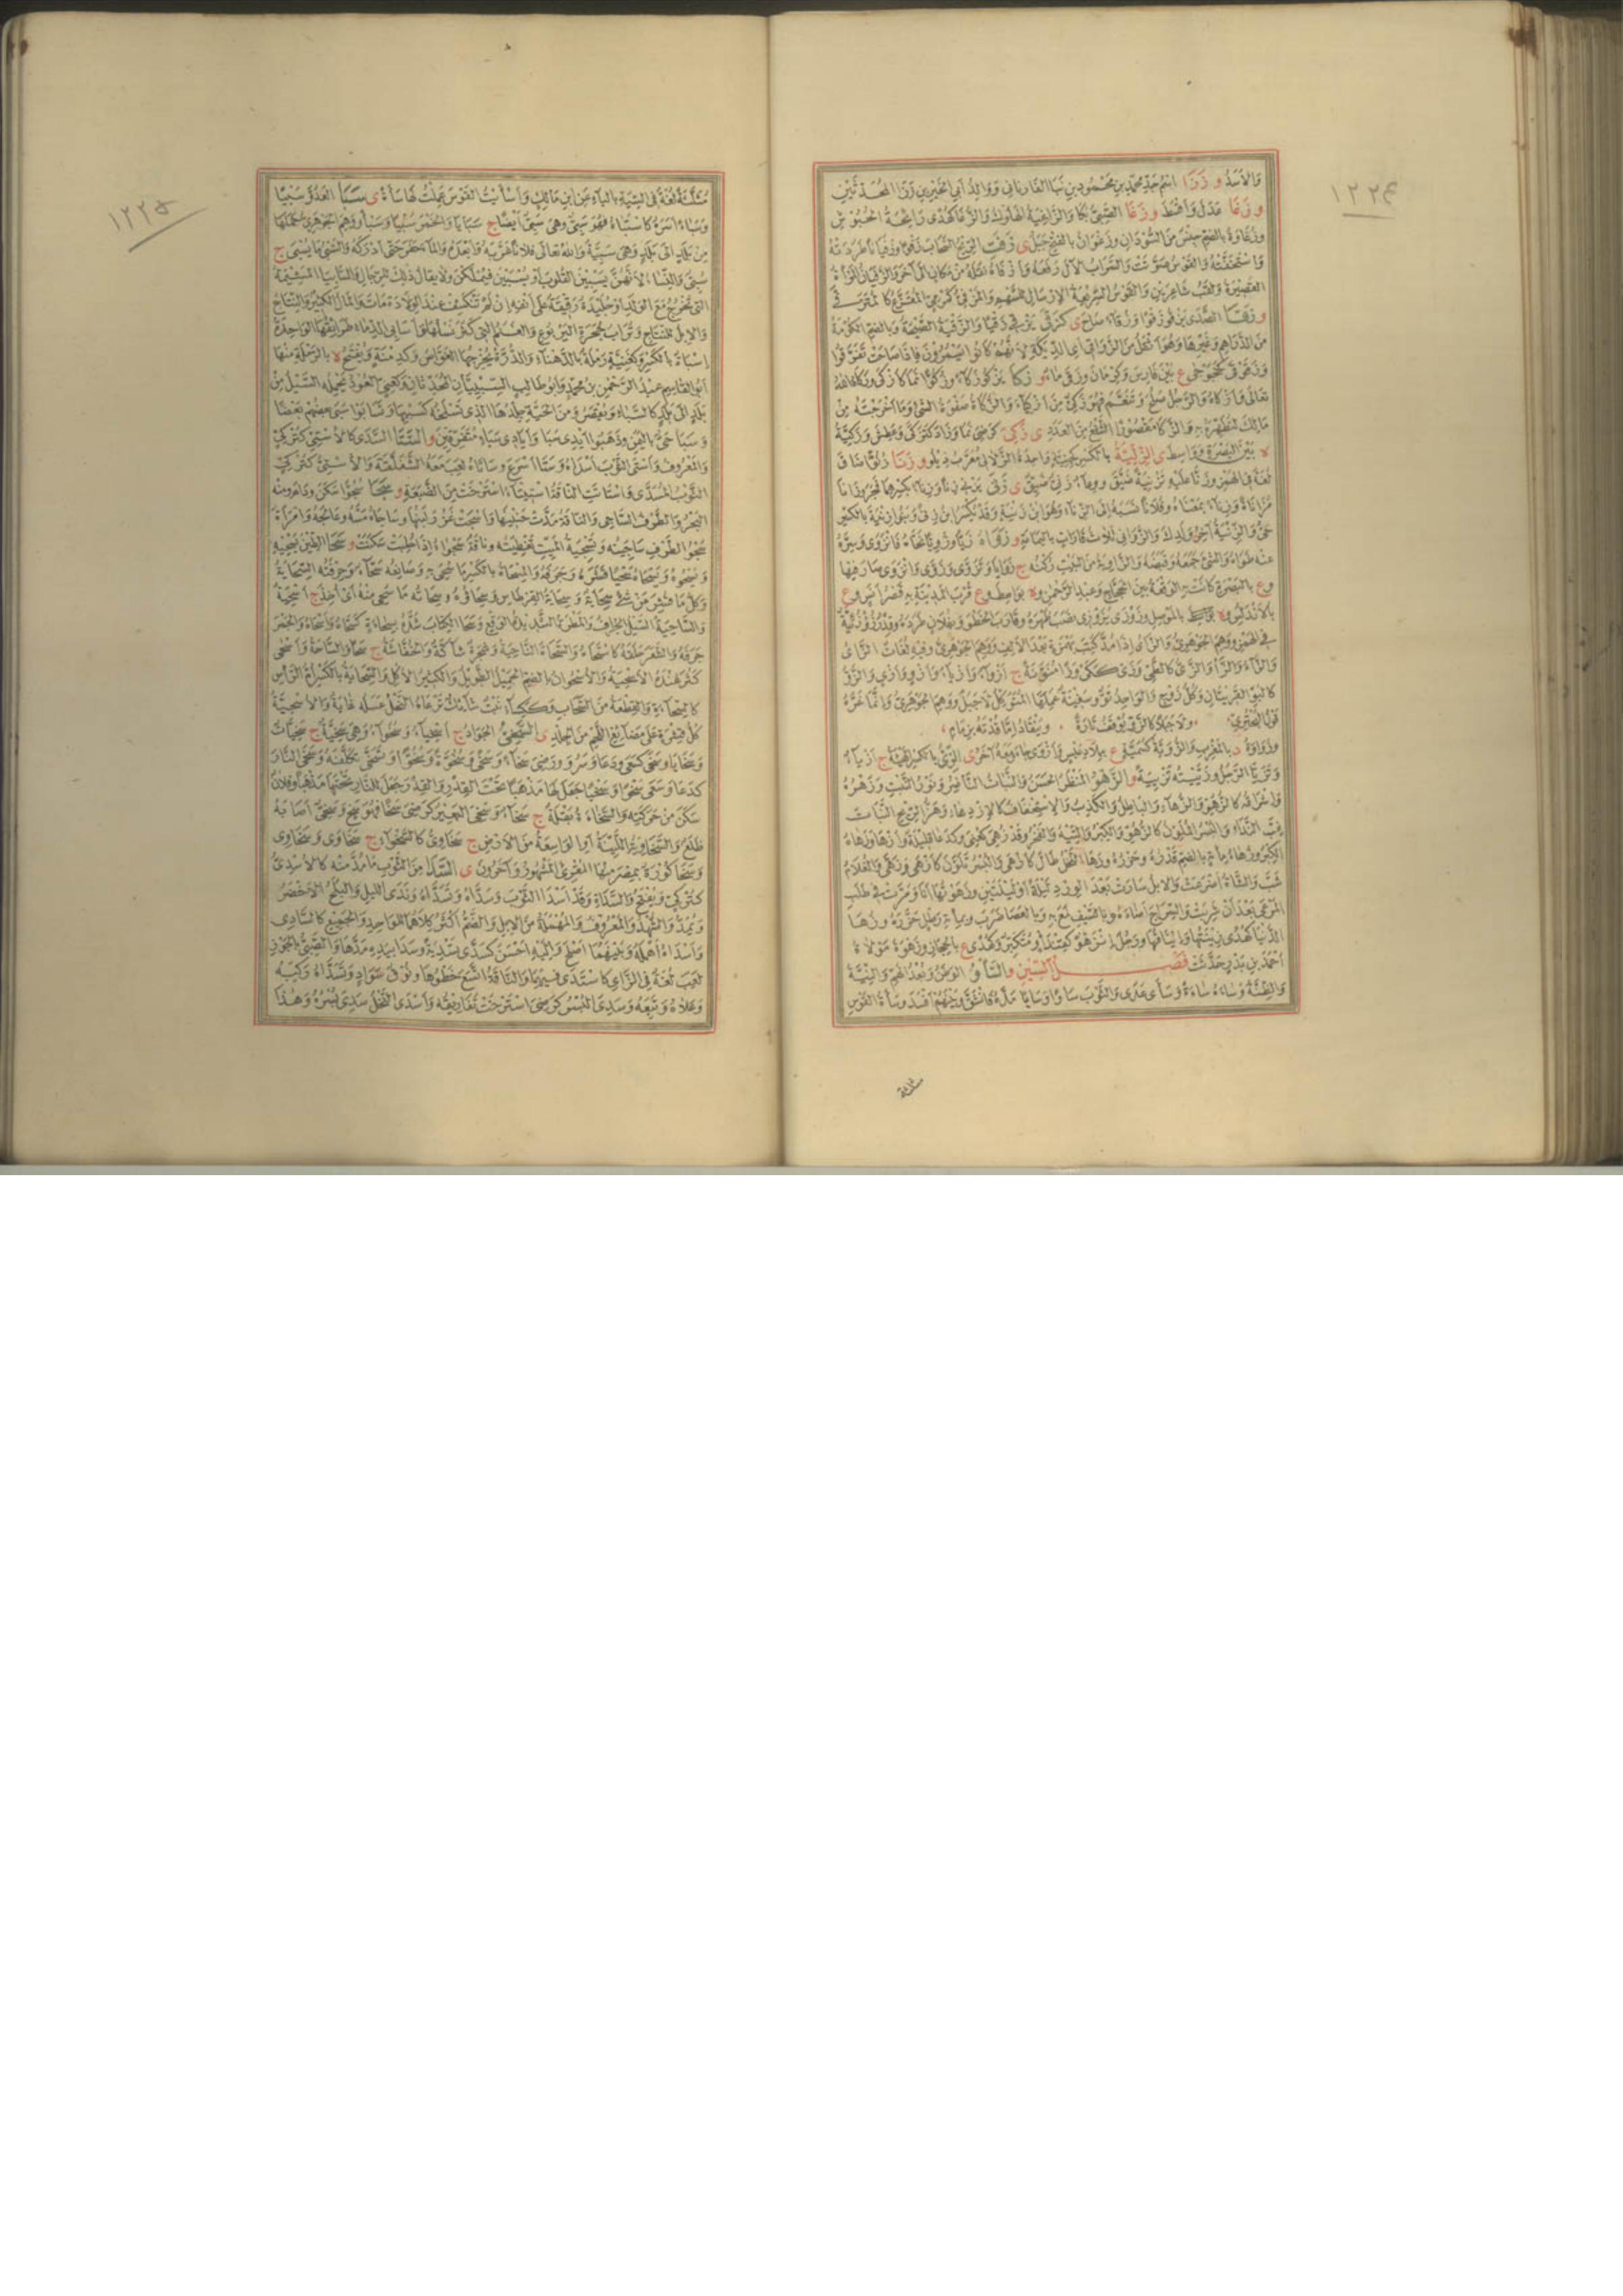 ١٢٢٤
والاسد و ززا اسم جد محمد بن محمود بن الفاريابي ووالد ابي الخير بن ززا المحدثين
و زغا عدل واقسط و زغا الصبي بكا والزاغية والزغا كهدى رائحة الحبوش
وزغاوة بالضم جنس من السودان وزغوان بالفتح جبل ى زفت الريح السحاب زفيا وزفيانا طردته
واستخفته والقوس صوتت والسراب الآل رفعه وازفاه نقله من مكان الى آخر والزفيان المرأة
القصيرة ولقب شاعرين والقوس السريعة الارسال للسهم
و زقا الصدى يزقو زقوا وزقاء صاح ى كزقى يزقي زقيا والزقية الصيحة وبالضم الكومة
من الدراهم وغيرها وهو اثقل من الزواقي اي الديكة لانهم كانوا يسمرون فاذا صاحت تفرقوا
ع بين فارس وكرمان و زكا يزكو زكاء وزكوا نما كازكى وزكاه الله
تعالى وازكاه والرجل صلح وتنعم فهو زكي من ازكياء والزكاة صفوة الشئ وما اخرجته من
مالك لتطهره به والزكا مقصورا الشفع من العدد ى زكي كرضي نما وزاد كتزكى وعطش وزكية
ة بين البصرة وواسط ى الزلية بالكسر كجنية واحدة الزلالي معرب زيلو و زنا زنوا ضاق
لغة في الهمز وزنا عليه تزنية ضيق ووعاء زني ضيق ى زنى يزني زنى وزناء بكسرهما فجر وزانا
مزاناة وزناء بمعناه وفلانا نسبه الى الزناء وهو ابن زنية وقد يكسر ابن زنى وبنو زنية بالكسر
حي والزنية آخر ولدك والزواني ثلاث قارات باليمامة و زواه زيا وزويا نحاه فانزوى وسره
عنه طواه والشئ جمعه وقبضه والزاوية من البيت ركنه ج زوايا وتزوى وزوى وانزوى صار فيها
وع بالبصرة كانت به الوقعة بين الحجاج وعبد الرحمن وة بواسط وع قرب المدينة به قصر انس وع
بالاندلس وة بالموصل وزوزى يزوزي نصب ظهره وقارب الخطو وبفلان طرده وقدر زؤزئة
في الهمز ووهم الجوهري والزاي اذا مد كتب بهمزة بعد الالف ووهم الجوهري وفيه لغات الزاي
والزاء والزا والزي كالطي وزي ككي وزا منونة ج ازواء وازياء وازو وازي والزو
كالبو القرينان وكل زوج والواحد تو وسفينة عملها المتوكل لا جبل ووهم الجوهري وانما غره
قول البحتري ولا جبلا كالزو يوقف تارة وينقاد اما قدته بزمام
وزواوة د بالمغرب والزوية كسمية ع ببلاد عبس وازوى جاء ومعه آخر ى الزي بالكسر الهيئة ج ازياء
وتزيا الرجل وزييته تزيية و الزهو المنظر الحسن والنبات الناضر ونور النبت وزهره
واشراقه كالزهو والزهاء والباطل والكذب والاستخفاف كالازدهاء وهز الريح النبات
غب الندى والبسر الملون كالزهو والكبر والتيه والفخر وقد زهي كعني وكدعا قليلة وازها وزهاه
الكبر وزهاء مائة بالضم قدره وحزره وزها النخل طال كازهى والبسر تلون كازهى وزهى والغلام
شب والشاة اضرعت والابل سارت بعد الورد ليلة او ليلتين وزهوتها انا ومرت في طلب
المرعى بعد ان شربت والسراج اضاءه وبالسيف لمع به وبالعصا ضرب وبمائة رطل حزره وزها
الدنيا كهدى زينتها وايناقها ورجل انزهو كقندأو متكبر وكهدى ع بالحجاز وزهوة مولاة
احمد بن بدر حدثت فصل السين و السأو الوطن وبعد الهم والنية
والطنة وساءه ساءة وسأى عدى والثوب سأوا وسأيا مده فانشق وبينهم افسد وسأة القوس
مثلثة
١٢٢٥
مثلثة لغة في السية بالياء عن ابن مالك واسأيت القوس عملت لها سأة ى سبا العدو سبيا
وسباء اسره كاستباه فهو سبي وهي سبي ايضا ج سبايا والخمر سبيا وسباء ووهم الجوهري حملها
من بلد الى بلد وهي سبية والله تعالى فلانا غربه وابعده والماء حفر حتى ادركه والسبي ما يسبى ج
سبي والنساء لانهن يسبين القلوب او يسبين فيملكن ولا يقال ذلك للرجال والسابياء المشيمة
التي تخرج مع الولد او جليدة رقيقة على انفه ان لم تكشف عند الولادة مات والمال الكثير والنتاج
والابل للنتاج وتراب جحرة اليربوع والغنم التي كثر نسلها واسابي الدماء طرائقها الواحدة
اسباءة بالكسر وكغنية رملة بالدهناء والدرة يخرجها الغواص وكدمنة ويفتح ة بالرملة منها
ابو القاسم عبد الرحمن بن محمد وابو طالب السبييان المحدثان وكغني العود يحمله السيل من
بلد الى بلد كالسباء ويقصر ومن الحية جلدها الذي تسلخه كسبيها وتسابوا سبى بعضهم بعضا
وسبا حي باليمن وذهبوا ايدي سبا وايادي سبا متفرقين و الستا السدى كالاستي كتركي
والمعروف واستى الثوب اسداه وستا اسرع وساتاه لعب معه الشفلقة والاستي كتركي
الثوب المسدى واستاتت الناقة استيتاء استرخت من الضبعة و سجا سجوا سكن ودام ومنه
البحر والطرف الساجي والناقة مدت حنينها واسجت غزر لبنها وساجاه مسه وعالجه وامرأة
سجواء الطرف ساجيته وتسجية الميت تغطيته وناقة سجواء اذا حلبت سكنت و سحا الطين يسحيه
ويسحوه ويسحاه سحيا قشره وجرفه والمسحاة بالكسر ما سحي به وصانعه سحاء وحرفته السحاية
وكل ما قشر من شئ سحاية وسحاية القرطاس وسحاؤه وسحاته ما سحي منه اي اخذ ج اسحية
والساحية السيل الجارف والمطرة الشديدة الوقع وسحا الكتاب شده بسحاءة كسحاه واسحاه والجمر
جرفه والشعر حلقه كاستحاه والسحاة الناحية وشجرة شاكة والخفاش ج سحا والساحة واسحى
كثر عنده الاسحية والاسحوان بالضم الجميل الطويل والكثير الاكل والسحاءة بالكسر ام الراس
كالسحاءة والقطعة من السحاب وككساء نبت شائك ترعاه النحل عسله غاية والاسحية
كل قشرة على مضائغ اللحم من الجلد ى السخي الجواد ج اسخياء وسخواء وهي سخية ج سخيات
وسخايا وسخى كسعى ودعا وسرو ورضي سخاء وسخى وسخوة وسخوا وتسخى تكلفه وسخى النار
كدعا وسعى سخوا وسخيا جعل لها مذهبا تحت القدر والقدر جعل للنار تحتها مذهبا وفلان
سكن من حركته والسخاءة بقلة ج سخاء وسخي البعير كرضي سخا فهو سخ وسخي اصابه
ظلع والسخاوية اللينة او الواسعة من الارض ج سخاوي كالسخواء ج سخاوى وسخاوي
وسخا كورة بمصر منها المقرئ المشهور وآخرون ى السدى من الثوب ما مد منه كالاسدي
كتركي ويفتح والسداة وقد اسدى الثوب وسداه وتسداه وندى الليل والبلح الاخضر
ويمد والشهد والمعروف والمهملة من الابل والضم اكثر كلاهما للواحد والجميع كالسادي
واسداه اهمله وبينهما اصلح واليه احسن كسدى تسدية وسدا بيده مدها والصبي بالجوز
لعب لغة في الزاي كاستدى فيهما والناقة اتسع خطوها ونوق سواد وتسداه ركبه
وعلاه وتبعه وسدي البسر كرضي استرخت ثفاريقه واسدى النخل سدي بسره وهذا